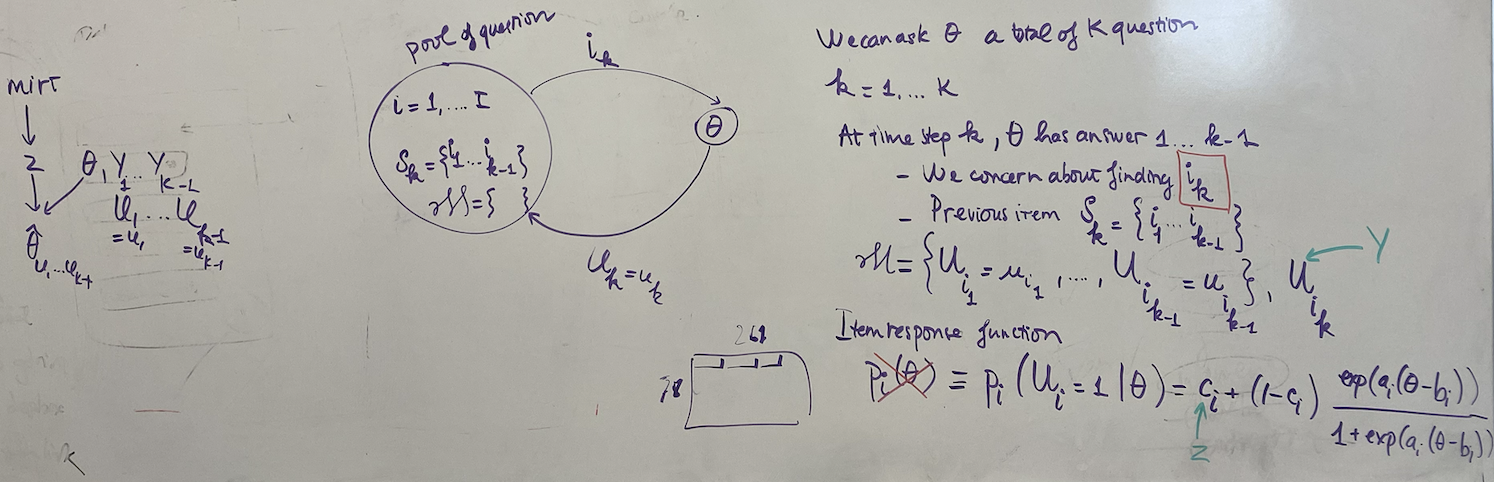 mirt
z
θ, Y₁ ... Y_{k-1}
U₁ ... U_{k-1}
= u₁ = u_{k-1}
θ_{u₁...u_{k-1}}
pool of question
i = 1, .... I
S_k = {i₁ ... i_{k-1}}
𝓜 = { }
i_k
θ
U_k = u_k
261
78
We can ask θ a total of K question
k = 1, ... K
At time step k, θ has answer 1 ... k-1
- We concern about finding i_k
- Previous item S_k = {i₁ ... i_{k-1}}
𝓜 = {U_{i₁} = u_{i₁}, ..., U_{i_{k-1}} = u_{i_{k-1}}}, U_{i_k} ← Y
Item response function
p_i(θ) ≡ p_i(U_i = 1 | θ) = c_i + (1-c_i) exp(a_i(θ-b_i)) / 1+exp(a_i(θ-b_i))
z